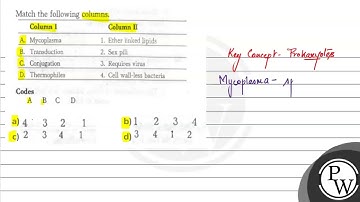 Match the following columns.
Column I Column II
A. Mycoplasma 1. Ether linked lipids
B. Transduction 2. Sex pili
C. Conjugation 3. Requires virus
D. Thermophiles 4. Cell wall-less bacteria
Codes
A B C D
a) 4 3 2 1 b) 1 2 3 4
c) 2 3 4 1 d) 3 4 1 2
Key Concept - Prokaryotes
Mycoplasma - sp
PW